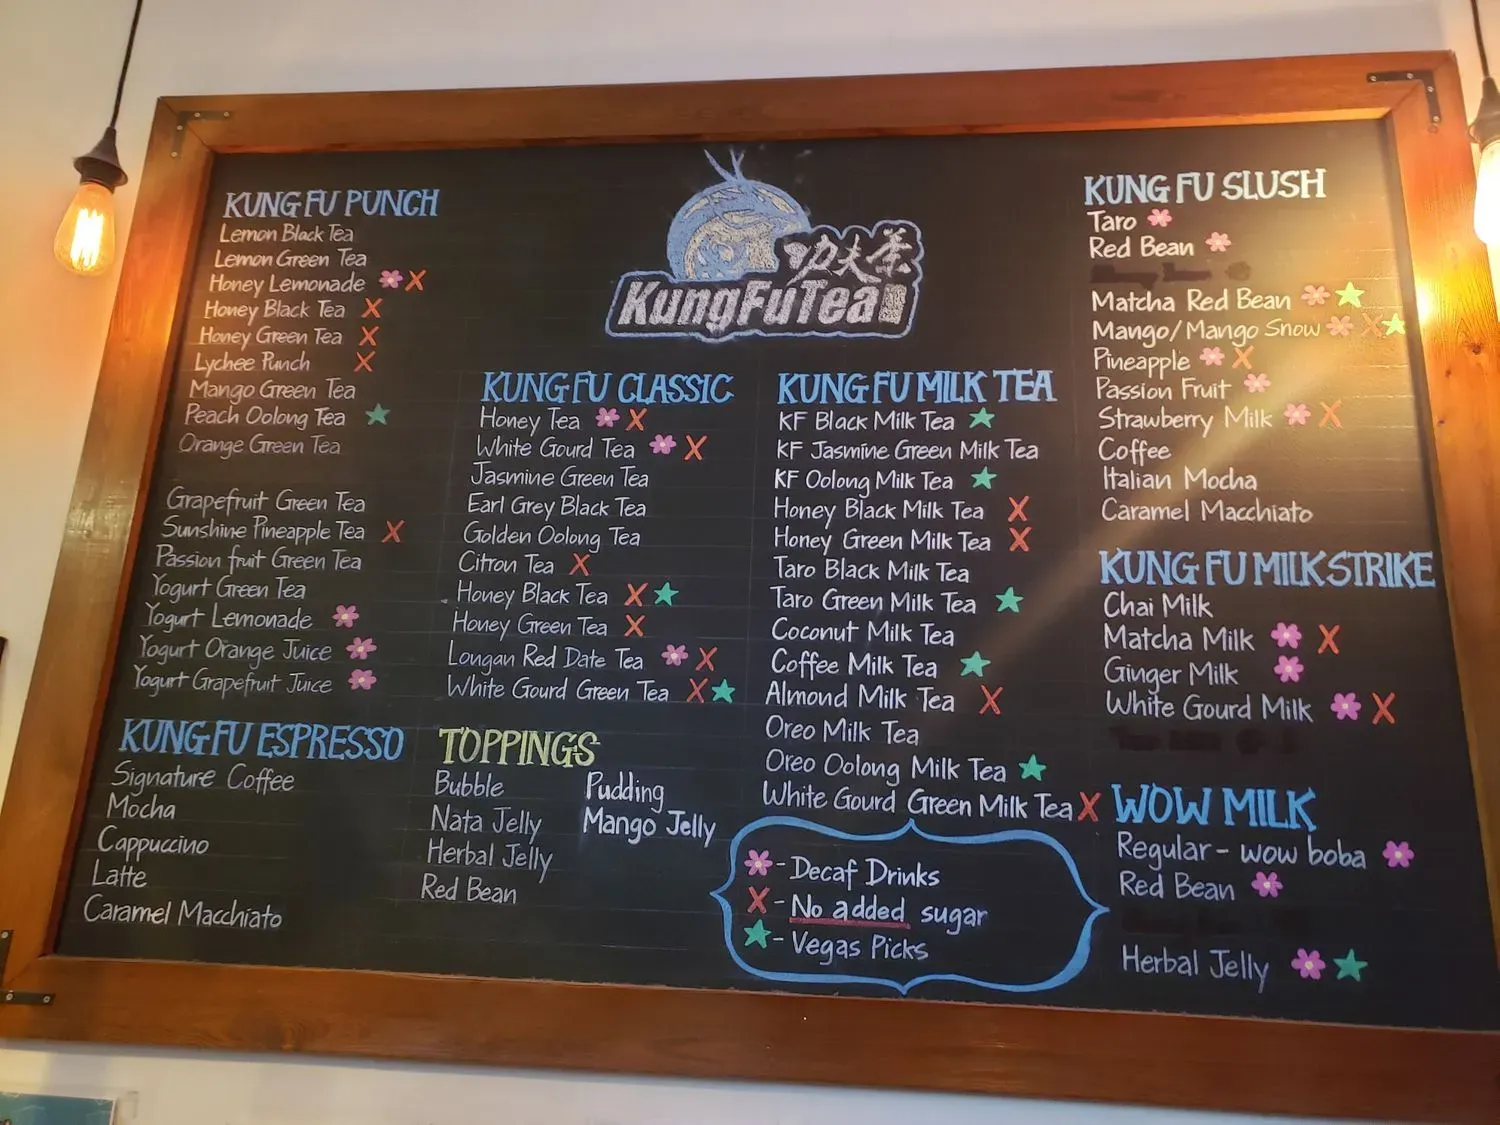 功夫茶
KungFuTea
KUNG FU PUNCH
Lemon Black Tea
Lemon Green Tea
Honey Lemonade
Honey Black Tea
Honey Green Tea
Lychee Punch
Mango Green Tea
Peach Oolong Tea
Orange Green Tea
Grapefruit Green Tea
Sunshine Pineapple Tea
Passion fruit Green Tea
Yogurt Green Tea
Yogurt Lemonade
Yogurt Orange Juice
Yogurt Grapefruit Juice
KUNG FU ESPRESSO
Signature Coffee
Mocha
Cappuccino
Latte
Caramel Macchiato
KUNG FU CLASSIC
Honey Tea
White Gourd Tea
Jasmine Green Tea
Earl Grey Black Tea
Golden Oolong Tea
Citron Tea
Honey Black Tea
Honey Green Tea
Longan Red Date Tea
White Gourd Green Tea
TOPPINGS
Bubble
Nata Jelly
Herbal Jelly
Red Bean
Pudding
Mango Jelly
KUNG FU MILK TEA
KF Black Milk Tea
KF Jasmine Green Milk Tea
KF Oolong Milk Tea
Honey Black Milk Tea
Honey Green Milk Tea
Taro Black Milk Tea
Taro Green Milk Tea
Coconut Milk Tea
Coffee Milk Tea
Almond Milk Tea
Oreo Milk Tea
Oreo Oolong Milk Tea
White Gourd Green Milk Tea
- Decaf Drinks
X - No added sugar
- Vegas Picks
KUNG FU SLUSH
Taro
Red Bean
Matcha Red Bean
Mango/Mango Snow
Pineapple
Passion Fruit
Strawberry Milk
Coffee
Italian Mocha
Caramel Macchiato
KUNG FU MILKSTRIKE
Chai Milk
Matcha Milk
Ginger Milk
White Gourd Milk
WOW MILK
Regular - wow boba
Red Bean
Herbal Jelly